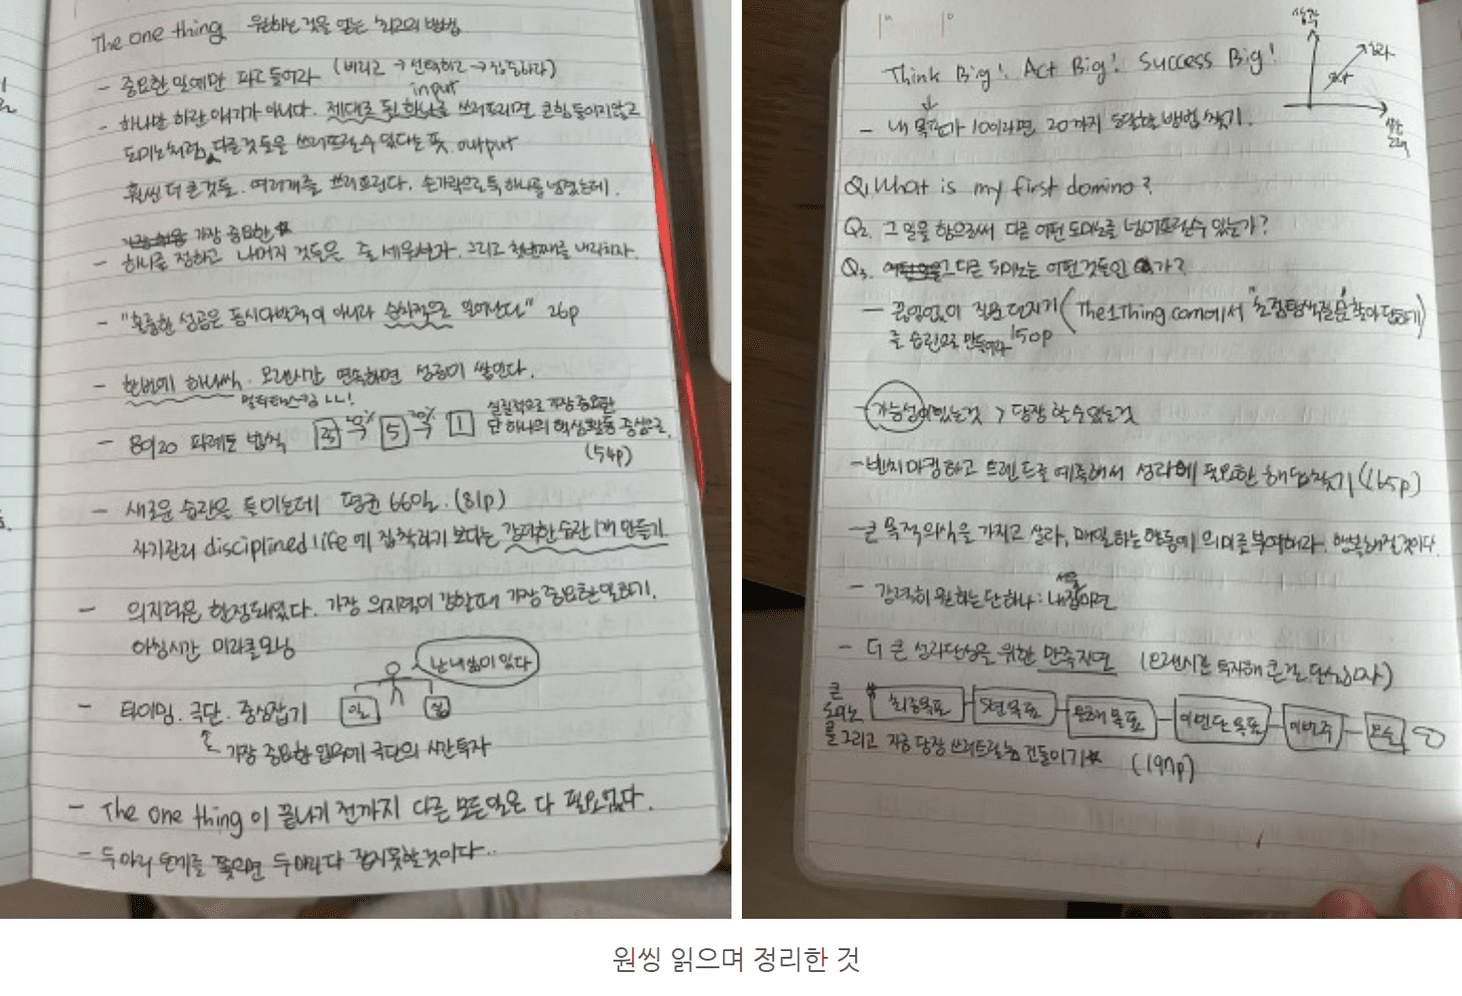 The one thing 원하는 것을 얻는 최고의 방법
- 중요한 일에만 파고들어라 (버리고 → 선택하고 → 집중하라)
input
- 하나만 하란 얘기가 아니다. 젣대로 된 하나를 쓰러뜨리면 큰힘 들이지않고
도미노처럼 다른것들을 쓰러뜨릴수 있다는 뜻. output
훨씬 더 큰것들. 여러개를 쓰러뜨린다. 손가락으로 툭 하나를 넘겼는데.
가장 중요한
- 하나를 정하고 나머지 것들은 줄 세우선자. 그리고 첫번째를 내리치자.
- "훌륭한 성공은 동시다발적이 아니라 순차적으로 일어난다" 26p
- 한번에 하나씩. 오랜시간 연속하면 성공이 쌓인다.
멀티태스킹 ㄴㄴ!
- 80/20 파레토 법칙 25 20% 5 20% 1 실질적으로 가장 중요한
단 하나의 핵심활동 중심으로.
(54p)
- 새로운 습관을 들이는데 평균 66일. (81p)
자기관리 disciplined life에 집착하기 보다는 강력한 습관 1개 만들기
- 의지력은 한정돼있다. 가장 의지력이 강할때 가장 중요한 일하기.
아침시간 미라클모닝
난 내 삶이 있다
- 타이밍. 극단. 중심잡기 일 삶
가장 중요한 업무에 극단의 시간투자
- The one thing이 끝나기 전까지 다른 모든일은 다 필요없다.
- 두마리 토끼를 쫓으면 두마리 다 잡지못할것이다..
생각
Think Big! Act Big! Success Big!
성과
- 내 목표가 10이라면 20까지 도달할 방법 찾기.
행동
Q1. What is my first domino?
Q2. 그 일을 함으로써 다른 어떤 도미노를 넘어뜨릴수 있는가?
Q3. 그 다른 도미노는 어떤것들인가?
- 끊임없이 질문 던지기 (The1thing.com에서 "초점탐색질문" 찾아 답하기)
를 습관으로 만들어라 150p
- 가능성이 있는것 > 당장 할수있는것
- 벤치마킹하고 트렌드로 예측해서 성과에 필요한 해답찾기 (165p)
- 큰 목적의식을 가지고 살라, 매일하는 행동에 의미를 부여해라. 행복해질것이다.
서울
- 강력히 원하는 단 하나: 내집마련
- 더 큰 성과달성을 위한 만족지연 (오랜시간 투자해 큰걸 달성하자)
큰 도미노 최종목표 - 5년목표 - 올해 목표 - 이번달 목표 - 이번주 - 오늘
를 그리고 지금 당장 쓰러트릴놈 건들이기 (197p)
원씽 읽으며 정리한 것